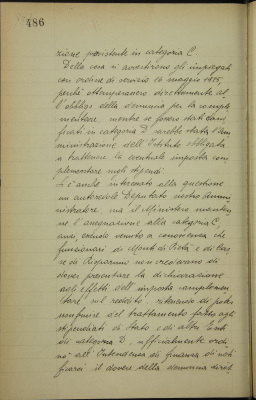 486
zione preesistente in categoria C.
Della cosa si avvertirono gli impiegati
con ordine di servizio 16 maggio 1925,
perchè ottemperassero direttamente al
l'obbligo della denuncia per la comple
mentare, mentre se fossero stati clas
ficati in categoria D sarebbe stata l'am
ministrazione dell'Istituto obbligata
a trattenere la eventuale imposta com
plementare sugli stipendi.
Si è anche interessato alla questione
un autorevole Deputato nostro Ammi
nistratore, ma il Ministero manten
ne l'assegnazione alla categoria C,
anzi, essendo venuto a conoscenza che
funzionari di Monti di Pietà e di Cas
se di Risparmio non credevano di
dover presentare la dichiarazione
agli effetti dell'imposta complemen
tare sul reddito, ritenendo di poter
usufruire del trattamento fatto agli
stipendiati di Stato e di altri Enti
di categoria D, ufficialmente ordi
nò all'Intendenza di finanza di noti
ficarci il dovere della denuncia diret